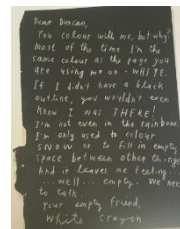 Dear Duncan,
You colour with me, but why?
Most of the time I'm the
same colour as the page you
are using me on - WHITE.
If I didn't have a black
outline, you wouldn't even
know I was THERE!
I'm not even in the rainbow.
I'm only used to colour
SNOW or to fill in empty
space between other things.
And it leaves me feeling...
...well... empty. We need
to talk.
Your empty friend,
White Crayon